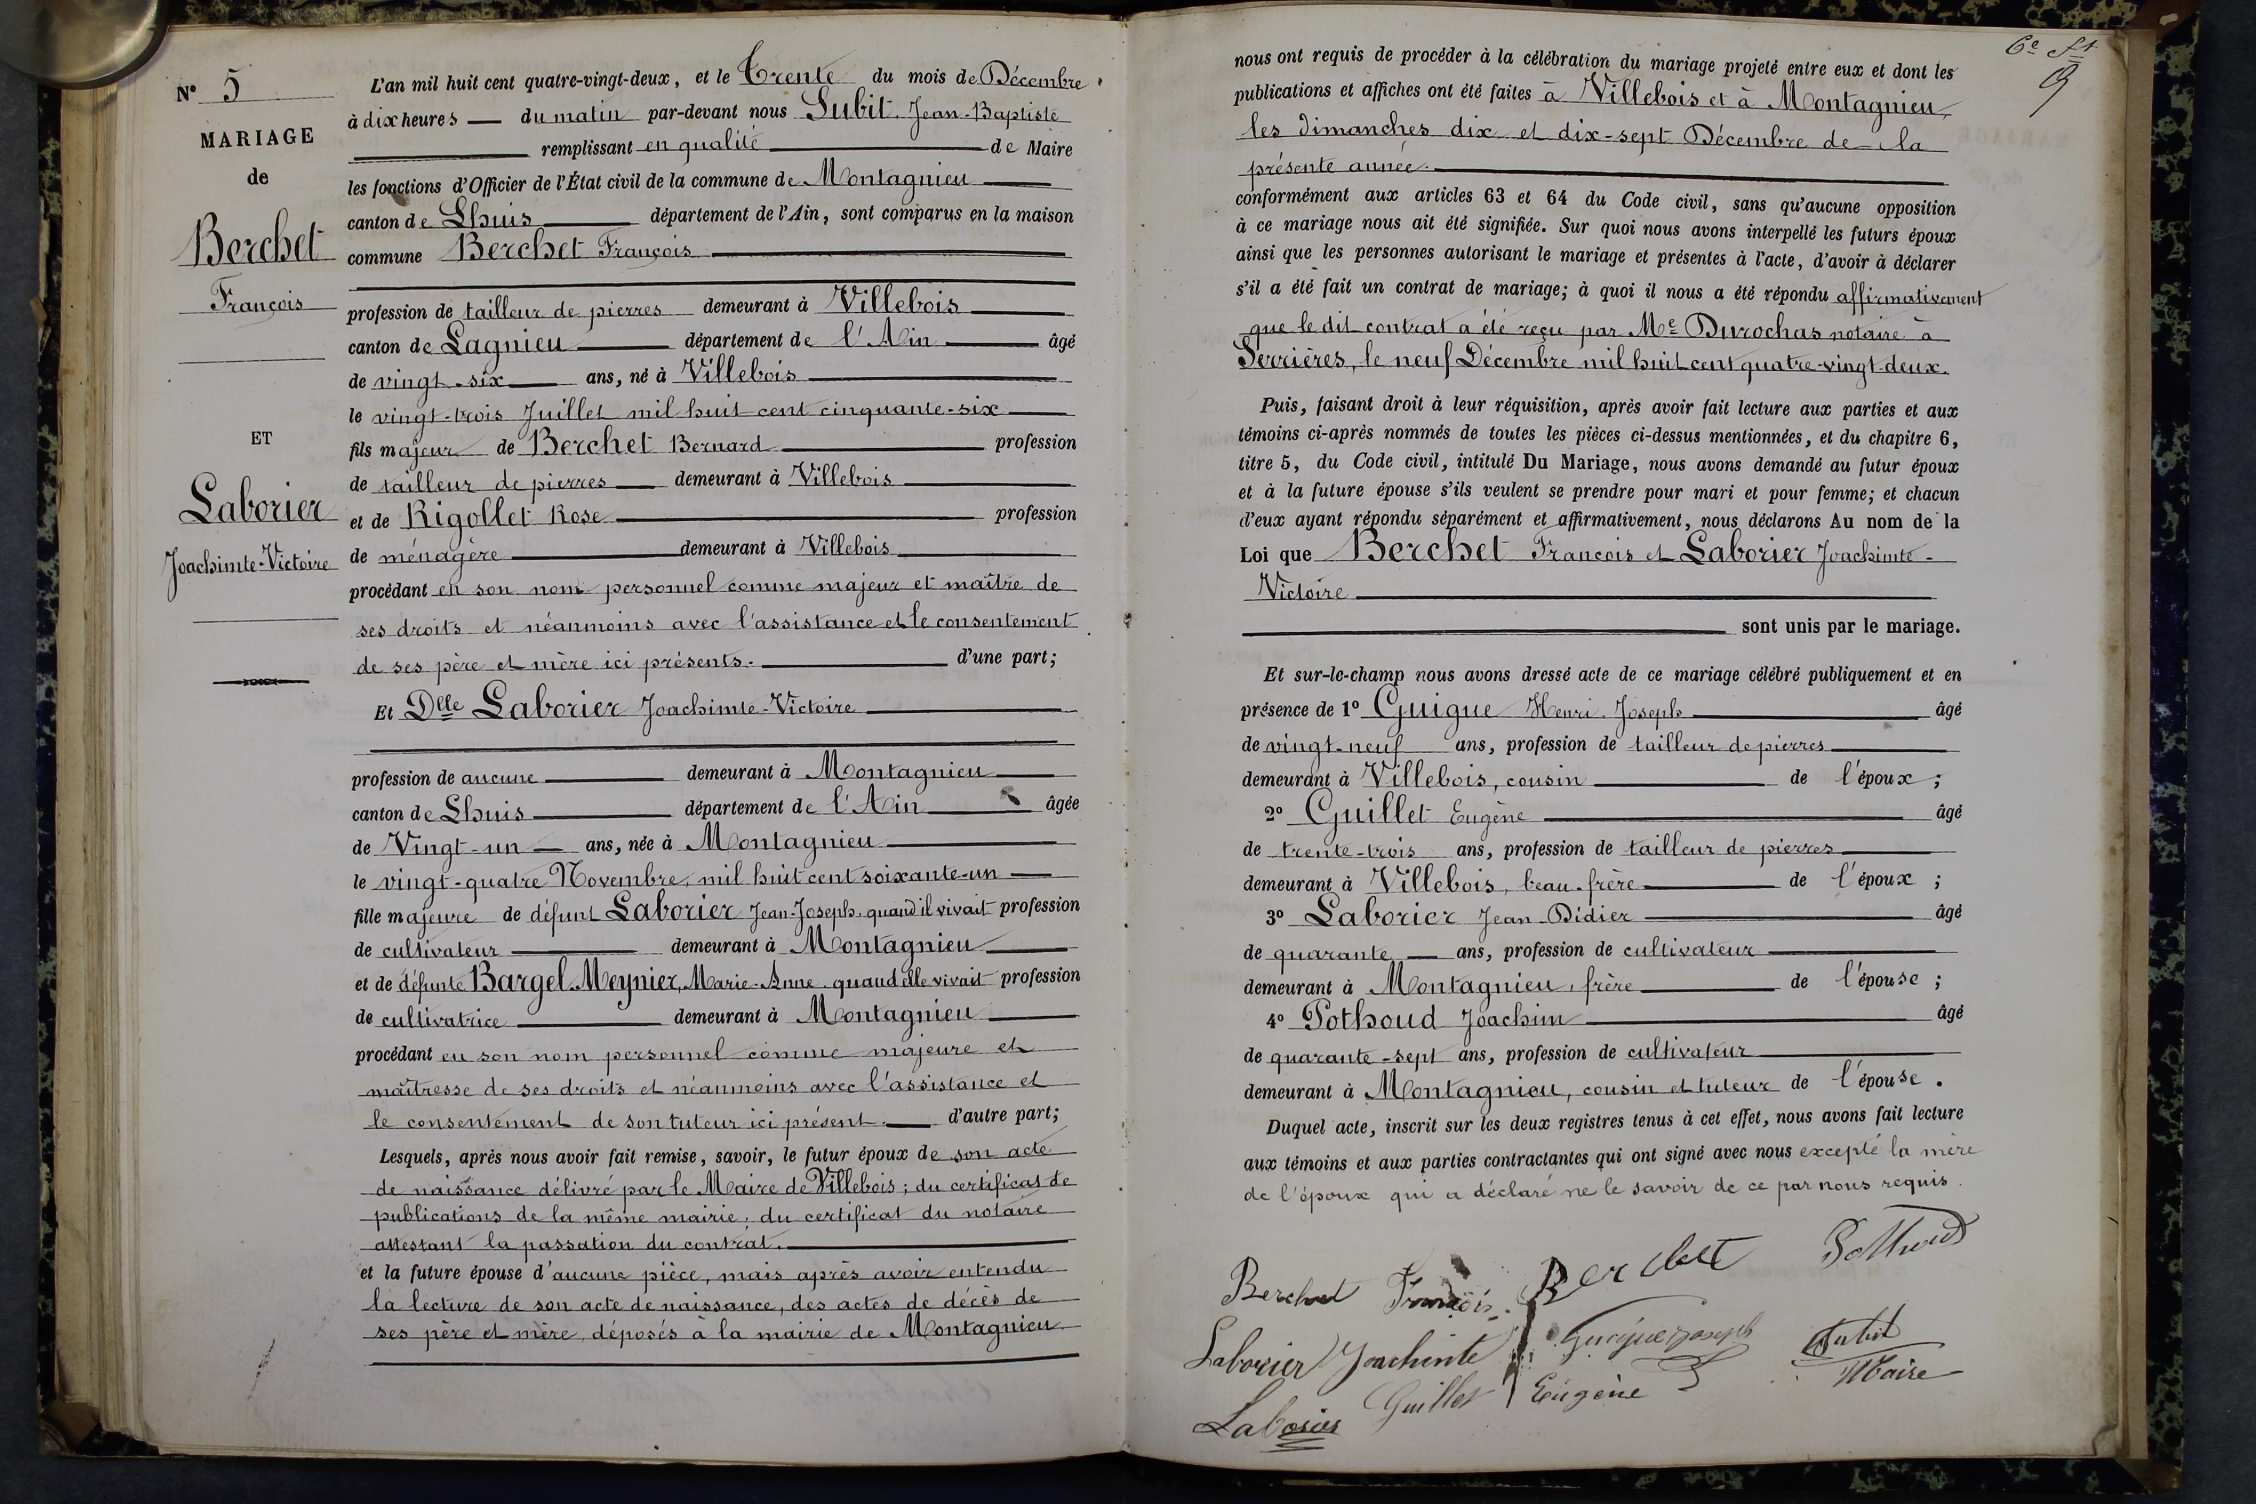 N° 5
MARIAGE
de
Berchet
François
ET
Laborier
Joachimte-Victoire
L'an mil huit cent quatre-vingt-deux, et le Trente du mois de Décembre
à dix heures du matin par-devant nous Subit Jean-Baptiste
remplissant en qualité de Maire
les fonctions d'Officier de l'État civil de la commune de Montagnieu
canton de Lhuis département de l'Ain, sont comparus en la maison
commune Berchet François
profession de tailleur de pierres demeurant à Villebois
canton de Lagnieu département de l'Ain âgé
de vingt-six ans, né à Villebois
le vingt-trois Juillet mil huit cent cinquante-six
fils majeur de Berchet Bernard profession
de tailleur de pierres demeurant à Villebois
et de Rigollet Rose profession
de ménagère demeurant à Villebois
procédant en son nom personnel comme majeur et maître de
ses droits et néanmoins avec l'assistance et le consentement
de ses père et mère ici présents. d'une part;
Et Dlle Laborier Joachimte-Victoire
profession de aucune demeurant à Montagnieu
canton de Lhuis département de l'Ain âgée
de Vingt-un ans, née à Montagnieu
le vingt-quatre Novembre, mil huit cent soixante-un
fille majeure de défunt Laborier Jean-Joseph, quand il vivait profession
de cultivateur demeurant à Montagnieu
et de défunte Bargel-Meynier, Marie-Anne quand elle vivait profession
de cultivatrice demeurant à Montagnieu
procédant en son nom personnel comme majeure et
maîtresse de ses droits et néanmoins avec l'assistance et
le consentement de son tuteur ici présent. d'autre part;
Lesquels, après nous avoir fait remise, savoir, le futur époux de son acte
de naissance délivré par le Maire de Villebois; du certificat de
publications de la même mairie; du certificat du notaire
attestant la passation du contrat.
et la future épouse d'aucune pièce, mais après avoir entendu
la lecture de son acte de naissance, des actes de décès de
ses père et mère, déposés à la mairie de Montagnieu
6e
9
nous ont requis de procéder à la célébration du mariage projeté entre eux et dont les
publications et affiches ont été faites à Villebois et à Montagnieu,
les dimanches dix et dix-sept Décembre de la
présente année.
conformément aux articles 63 et 64 du Code civil, sans qu'aucune opposition
à ce mariage nous ait été signifiée. Sur quoi nous avons interpellé les futurs époux
ainsi que les personnes autorisant le mariage et présentes à l'acte, d'avoir à déclarer
s'il a été fait un contrat de mariage; à quoi il nous a été répondu affirmativement
que le dit contrat a été reçu par Me Durochas notaire à
Serrières, le neuf Décembre mil huit cent quatre-vingt-deux.
Puis, faisant droit à leur réquisition, après avoir fait lecture aux parties et aux
témoins ci-après nommés de toutes les pièces ci-dessus mentionnées, et du chapitre 6,
titre 5, du Code civil, intitulé Du Mariage, nous avons demandé au futur époux
et à la future épouse s'ils veulent se prendre pour mari et pour femme; et chacun
d'eux ayant répondu séparément et affirmativement, nous déclarons Au nom de la
Loi que Berchet François et Laborier Joachimte-
Victoire
sont unis par le mariage.
Et sur-le-champ nous avons dressé acte de ce mariage célébré publiquement et en
présence de 1° Guigue Henri-Joseph âgé
de vingt-neuf ans, profession de tailleur de pierres
demeurant à Villebois, cousin de l'époux;
2° Guillet Eugène âgé
de trente-trois ans, profession de tailleur de pierres
demeurant à Villebois, beau-frère de l'époux;
3° Laborier Jean-Didier âgé
de quarante ans, profession de cultivateur
demeurant à Montagnieu, frère de l'épouse;
4° Pothoud Joachim âgé
de quarante-sept ans, profession de cultivateur
demeurant à Montagnieu, cousin et tuteur de l'épouse.
Duquel acte, inscrit sur les deux registres tenus à cet effet, nous avons fait lecture
aux témoins et aux parties contractantes qui ont signé avec nous excepté la mère
de l'époux qui a déclaré ne le savoir de ce par nous requis.
Berchet François Berchet Pothoud
Laborier Joachimte Guigue Joseph Subit
Maire
Laborier Guillet Eugène